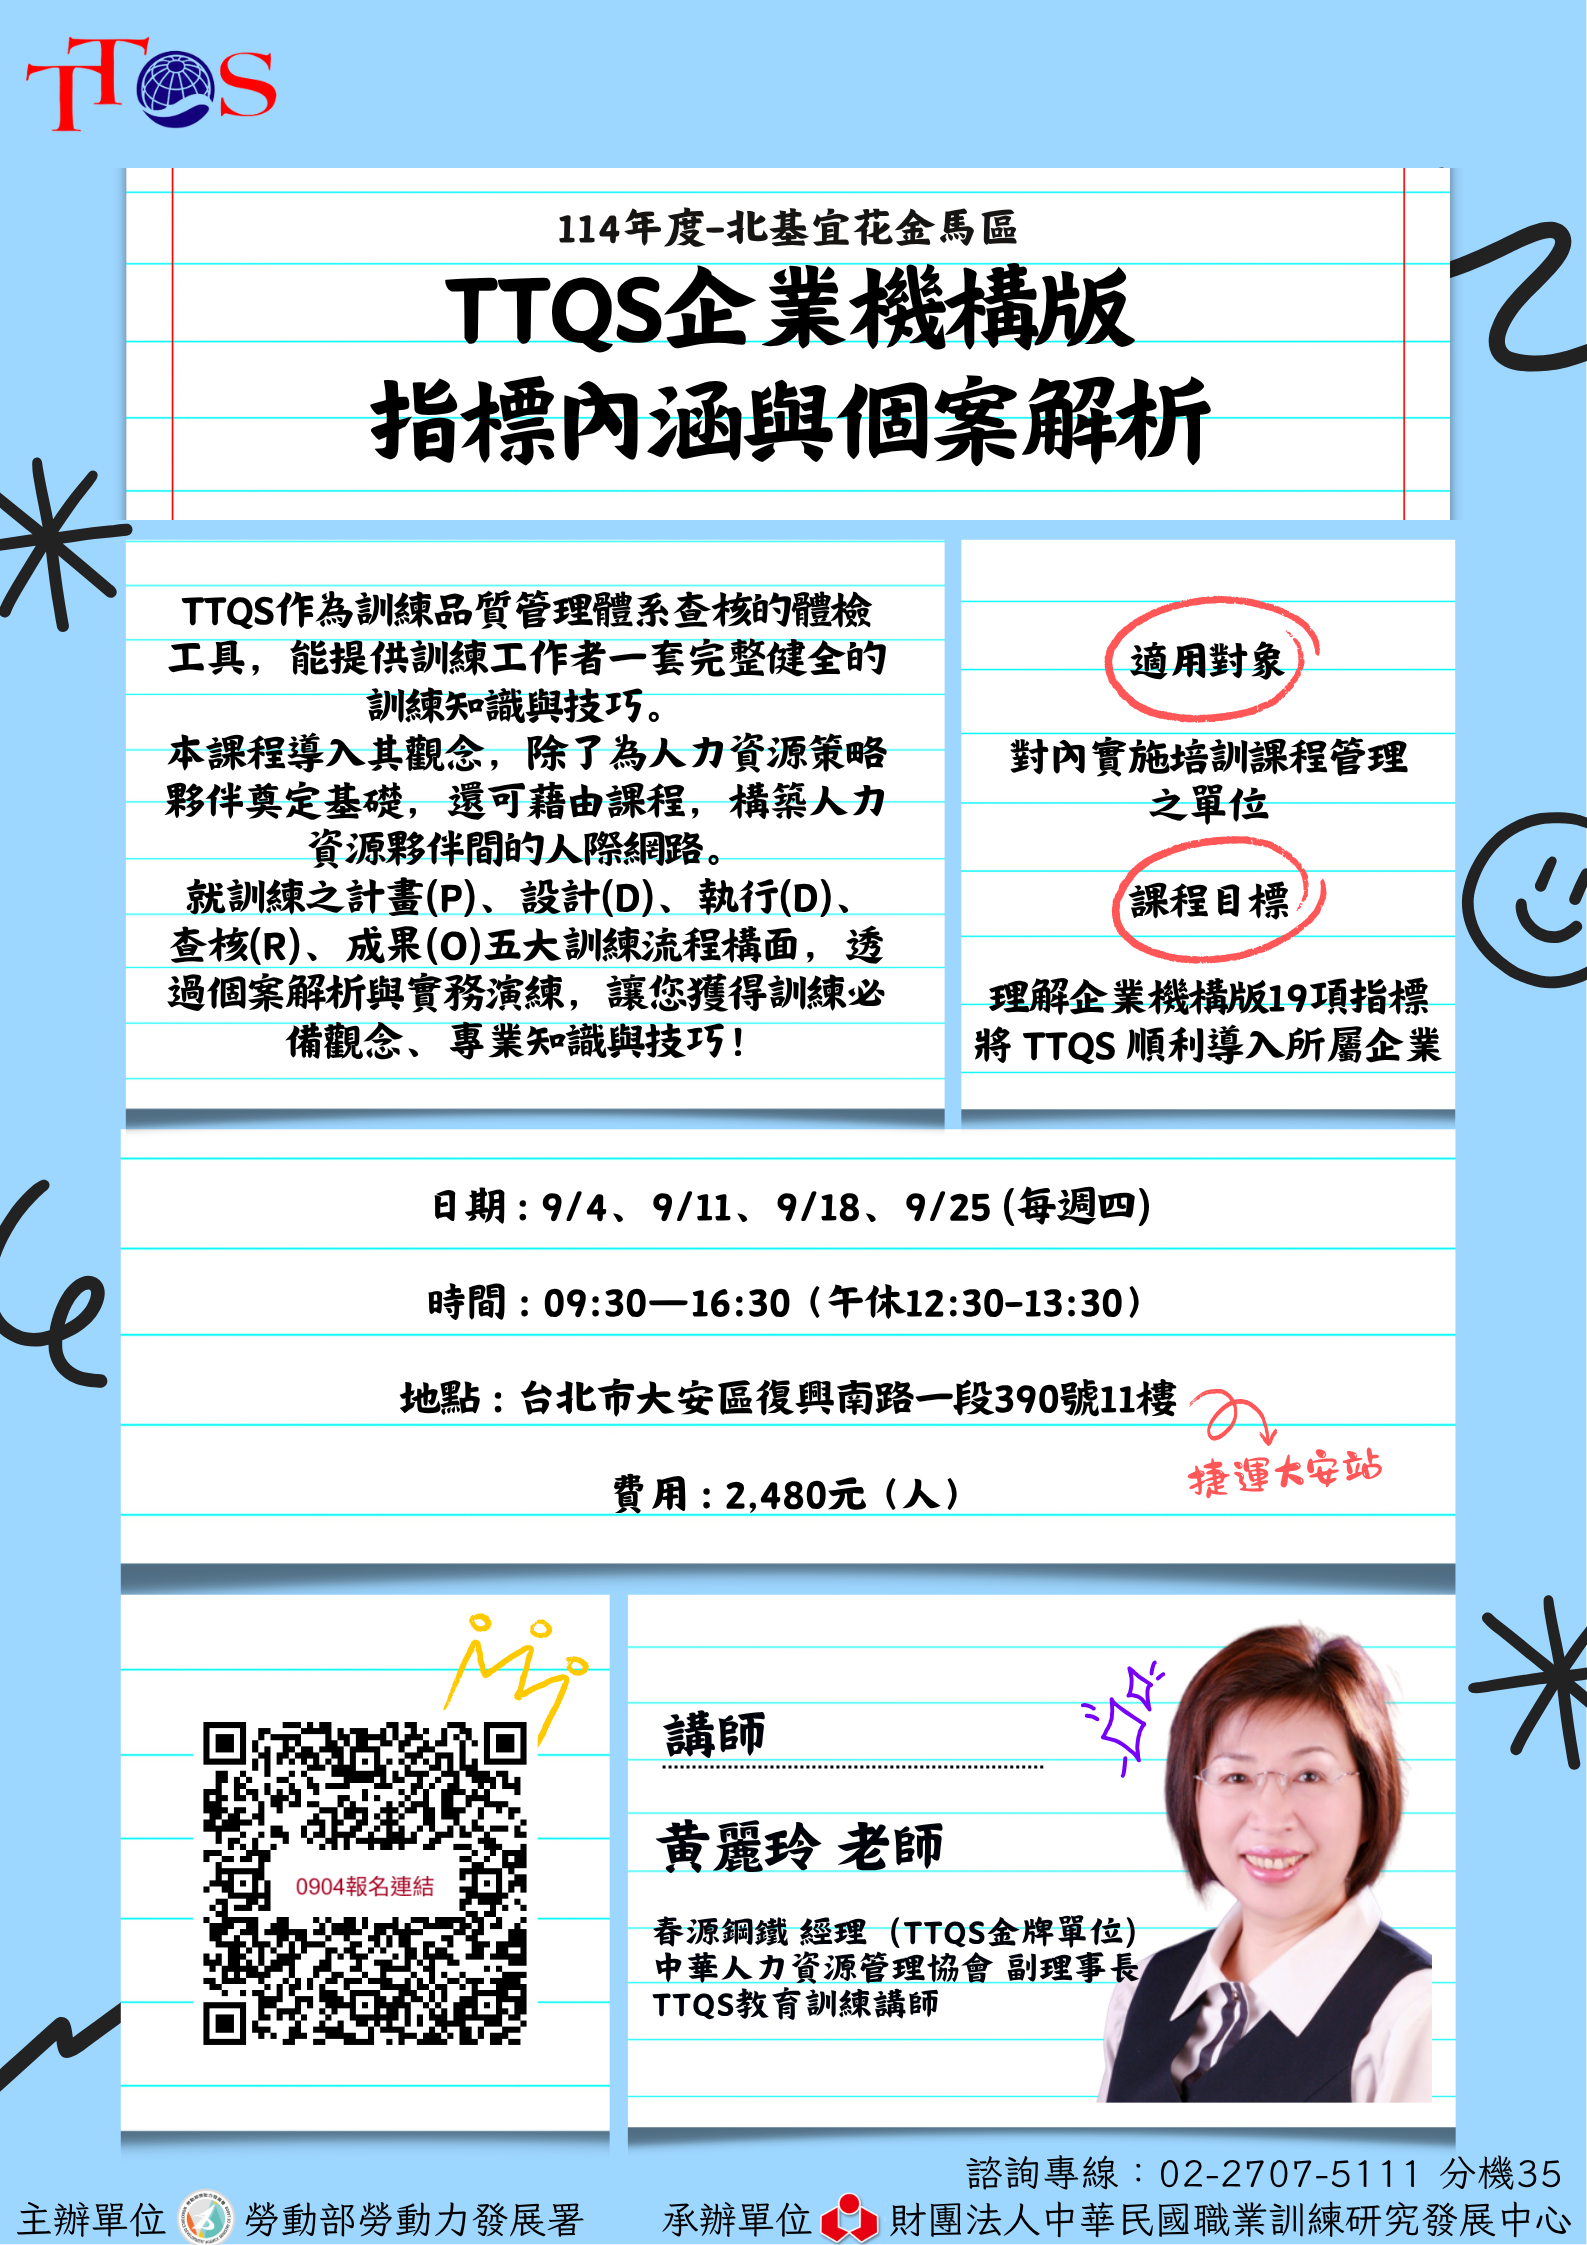 TTQS
114年度-北基宜花金馬區
TTQS企業機構版
指標內涵與個案解析
TTQS作為訓練品質管理體系查核的體檢
工具，能提供訓練工作者一套完整健全的
訓練知識與技巧。
本課程導入其觀念，除了為人力資源策略
夥伴奠定基礎，還可藉由課程，構築人力
資源夥伴間的人際網路。
就訓練之計畫(P)、設計(D)、執行(D)、
查核(R)、成果(O)五大訓練流程構面，透
過個案解析與實務演練，讓您獲得訓練必
備觀念、專業知識與技巧！
適用對象
對內實施培訓課程管理
之單位
課程目標
理解企業機構版19項指標
將 TTQS 順利導入所屬企業
日期：9/4、9/11、9/18、9/25 (每週四)
時間：09:30—16:30（午休12:30-13:30）
地點：台北市大安區復興南路一段390號11樓
捷運大安站
費用：2,480元（人）
0904報名連結
講師
黃麗玲 老師
春源鋼鐵 經理（TTQS金牌單位）
中華人力資源管理協會 副理事長
TTQS教育訓練講師
諮詢專線：02-2707-5111 分機35
主辦單位 勞動部勞動力發展署
承辦單位 財團法人中華民國職業訓練研究發展中心